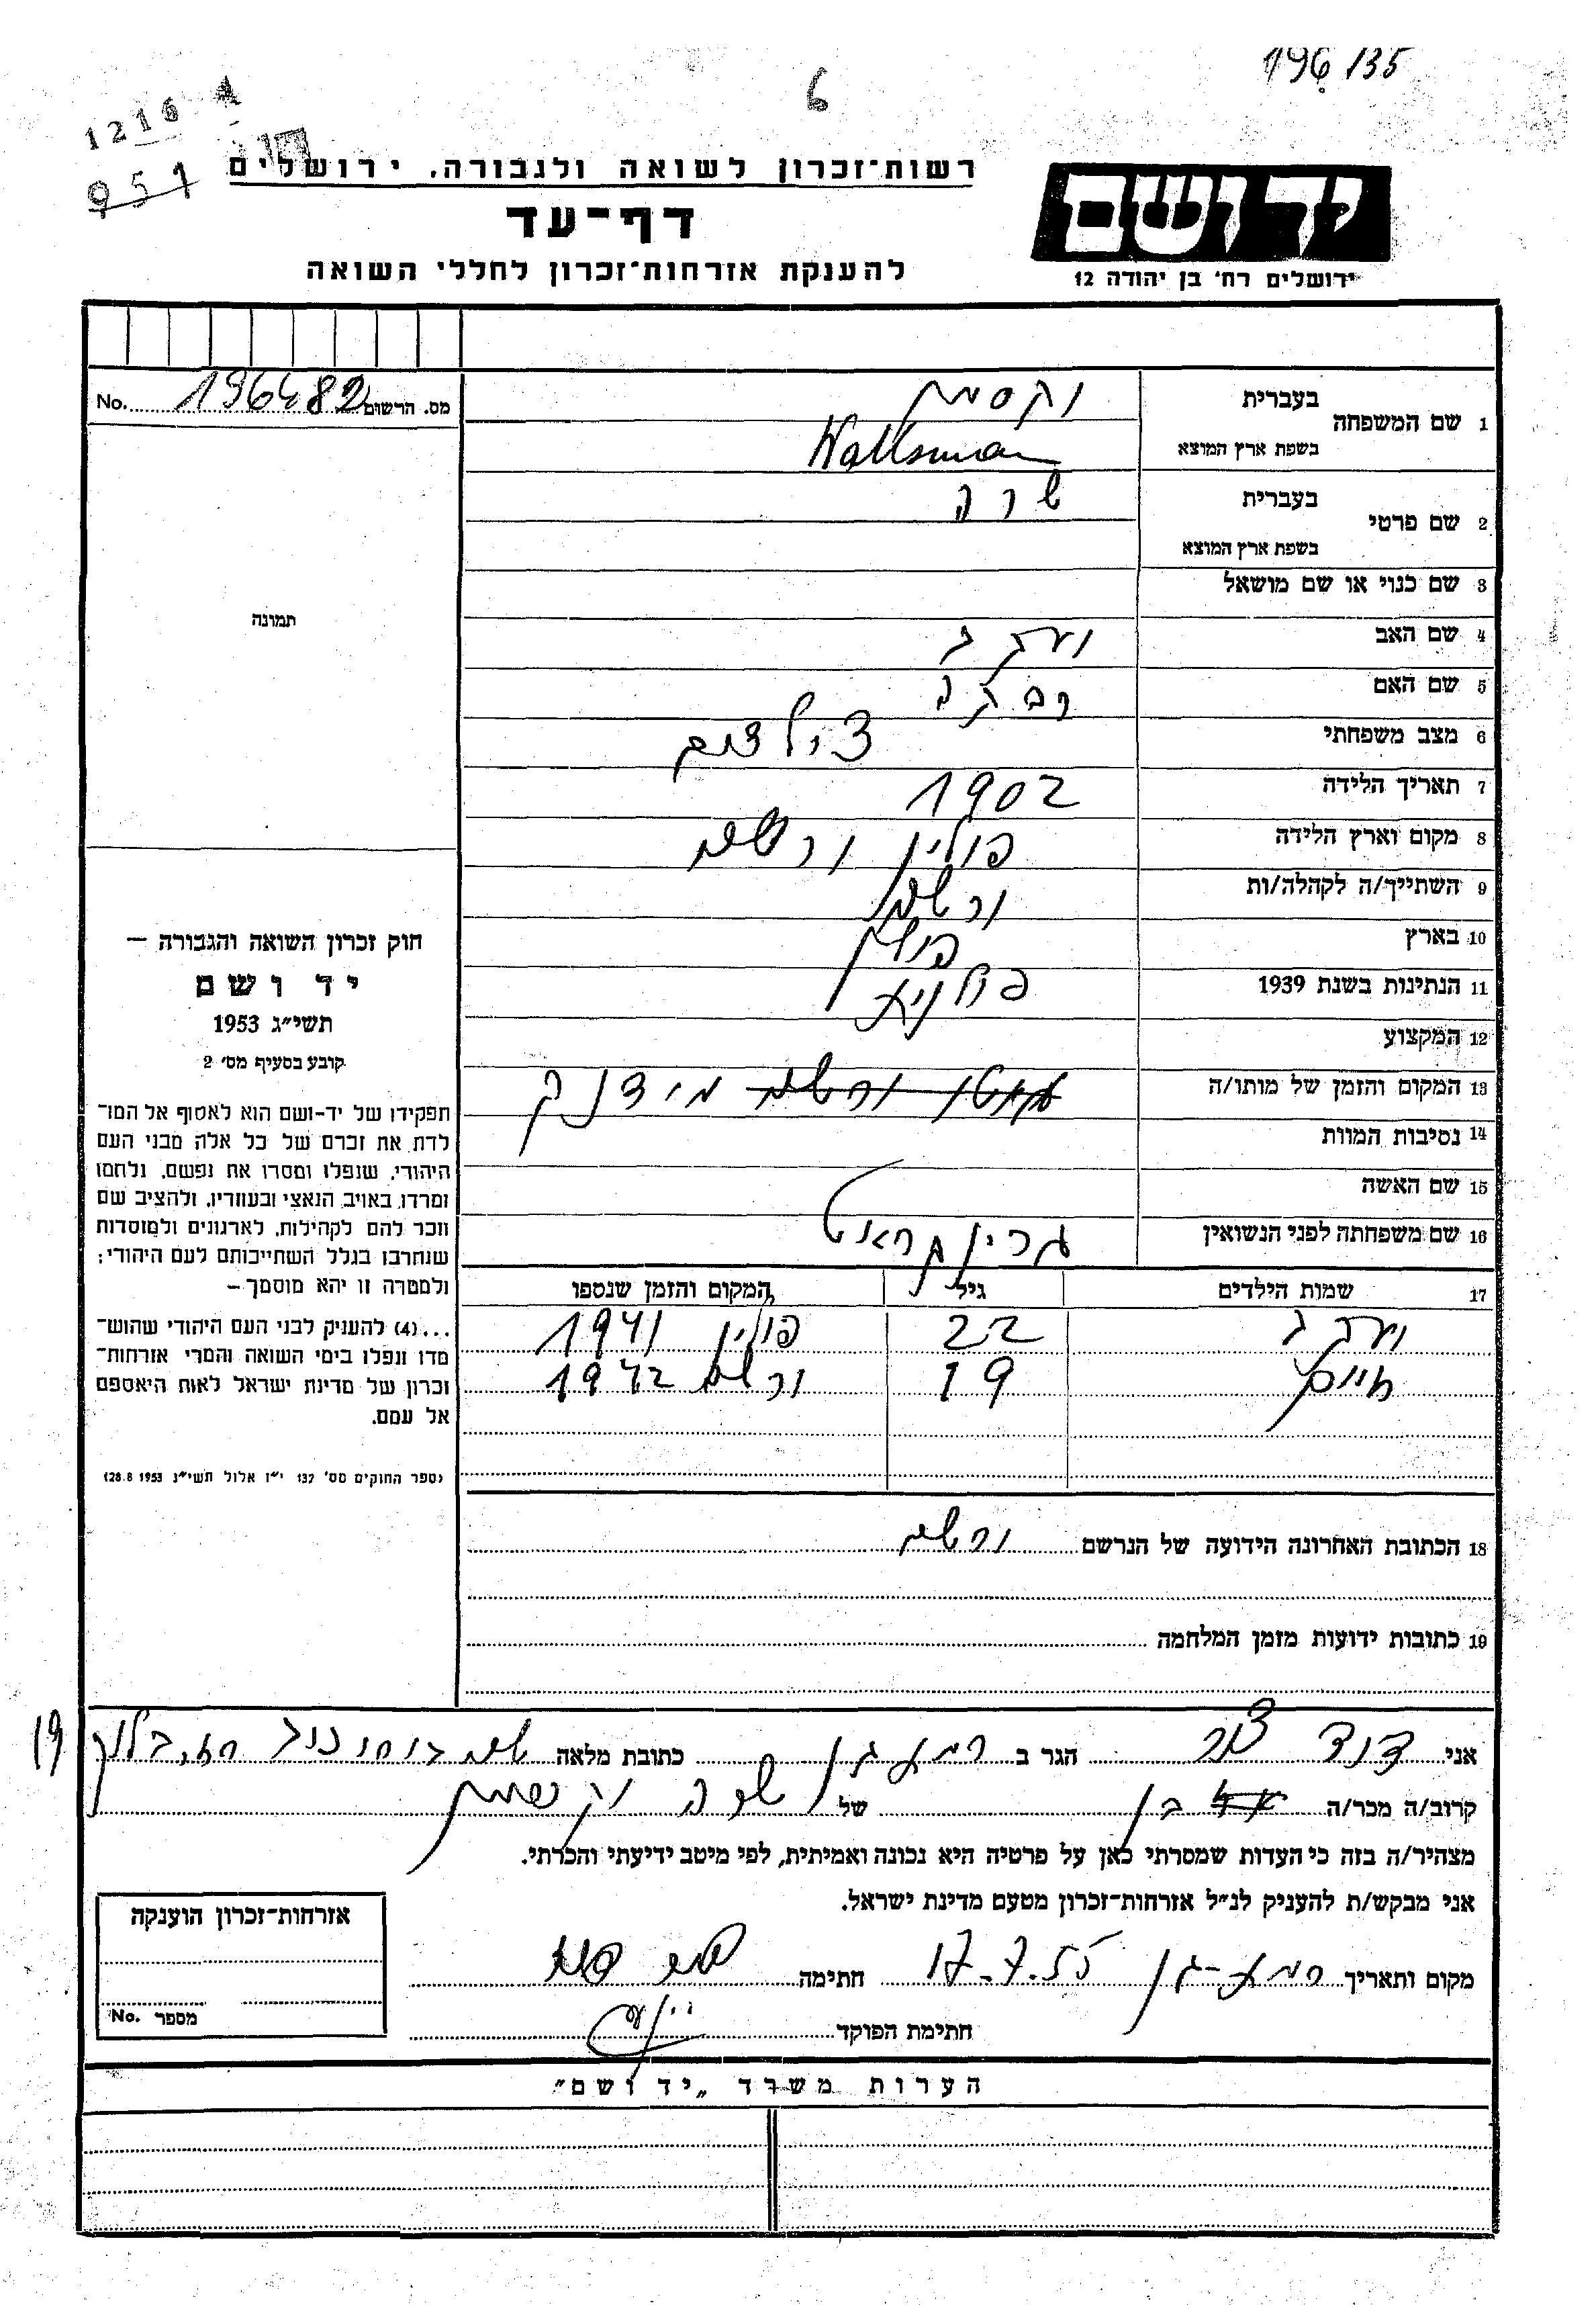 196/35
6
1216 A
951
רשות־זכרון לשואה ולגבורה, ירושלים
דף־עד
להענקת אזרחות־זכרון לחללי השואה
ידושם
ירושלים רח' בן יהודה 12
No. 196482 מס. הרשום
1 שם המשפחה בעברית וקסמן
בשפת ארץ המוצא
2 שם פרטי בעברית שרה
בשפת ארץ המוצא
3 שם כנוי או שם מושאל
4 שם האב
5 שם האם רבקה
6 מצב משפחתי
7 תאריך הלידה 1902
8 מקום וארץ הלידה פולין ורשה
9 השתייך/ה לקהלה/ות ורשה
10 בארץ פולין
11 הנתינות בשנת 1939 פולניה
12 המקצוע
13 המקום והזמן של מותו/ה ורשה מידנק
14 נסיבות המוות
15 שם האשה
16 שם משפחתה לפני הנשואין
17 שמות הילדים גיל המקום והזמן שנספו
22 פולין 1941
חיים 19 ורשה 1942
18 הכתובת האחרונה הידועה של הנרשם ורשה
19 כתובות ידועות מזמן המלחמה
תמונה
חוק זכרון השואה והגבורה –
יד ושם
תשי"ג 1953
קובע בסעיף מס' 2
תפקידו של יד־ושם הוא לאסוף אל המו־
לדת את זכרם של כל אלה מבני העם
היהודי, שנפלו ומסרו את נפשם, נלחמו
ומרדו באויב הנאצי ובעוזריו, ולהציב שם
וזכר להם לקהילות, לארגונים ולמוסדות
שנחרבו בגלל השתייכותם לעם היהודי;
ולמטרה זו יהא מוסמך –
...(4) להעניק לבני העם היהודי שהוש־
מדו ונפלו בימי השואה והמרי אזרחות־
זכרון של מדינת ישראל לאות היאספם
אל עמם.
(ספר החוקים מס' 132 י"ז אלול תשי"ג 28.8.1953)
אני דוד הגר ב רמת גן כתובת מלאה 19
קרוב/ה מכר/ה בן של שרה וקסמן
מצהיר/ה בזה כי העדות שמסרתי כאן על פרטיה היא נכונה ואמיתית, לפי מיטב ידיעתי והכרתי.
אני מבקש/ת להעניק לנ"ל אזרחות־זכרון מטעם מדינת ישראל.
מקום ותאריך רמת-גן 17.7.55 חתימה
חתימת הפוקד
אזרחות־זכרון הוענקה
No. מספר
הערות משרד „יד ושם"